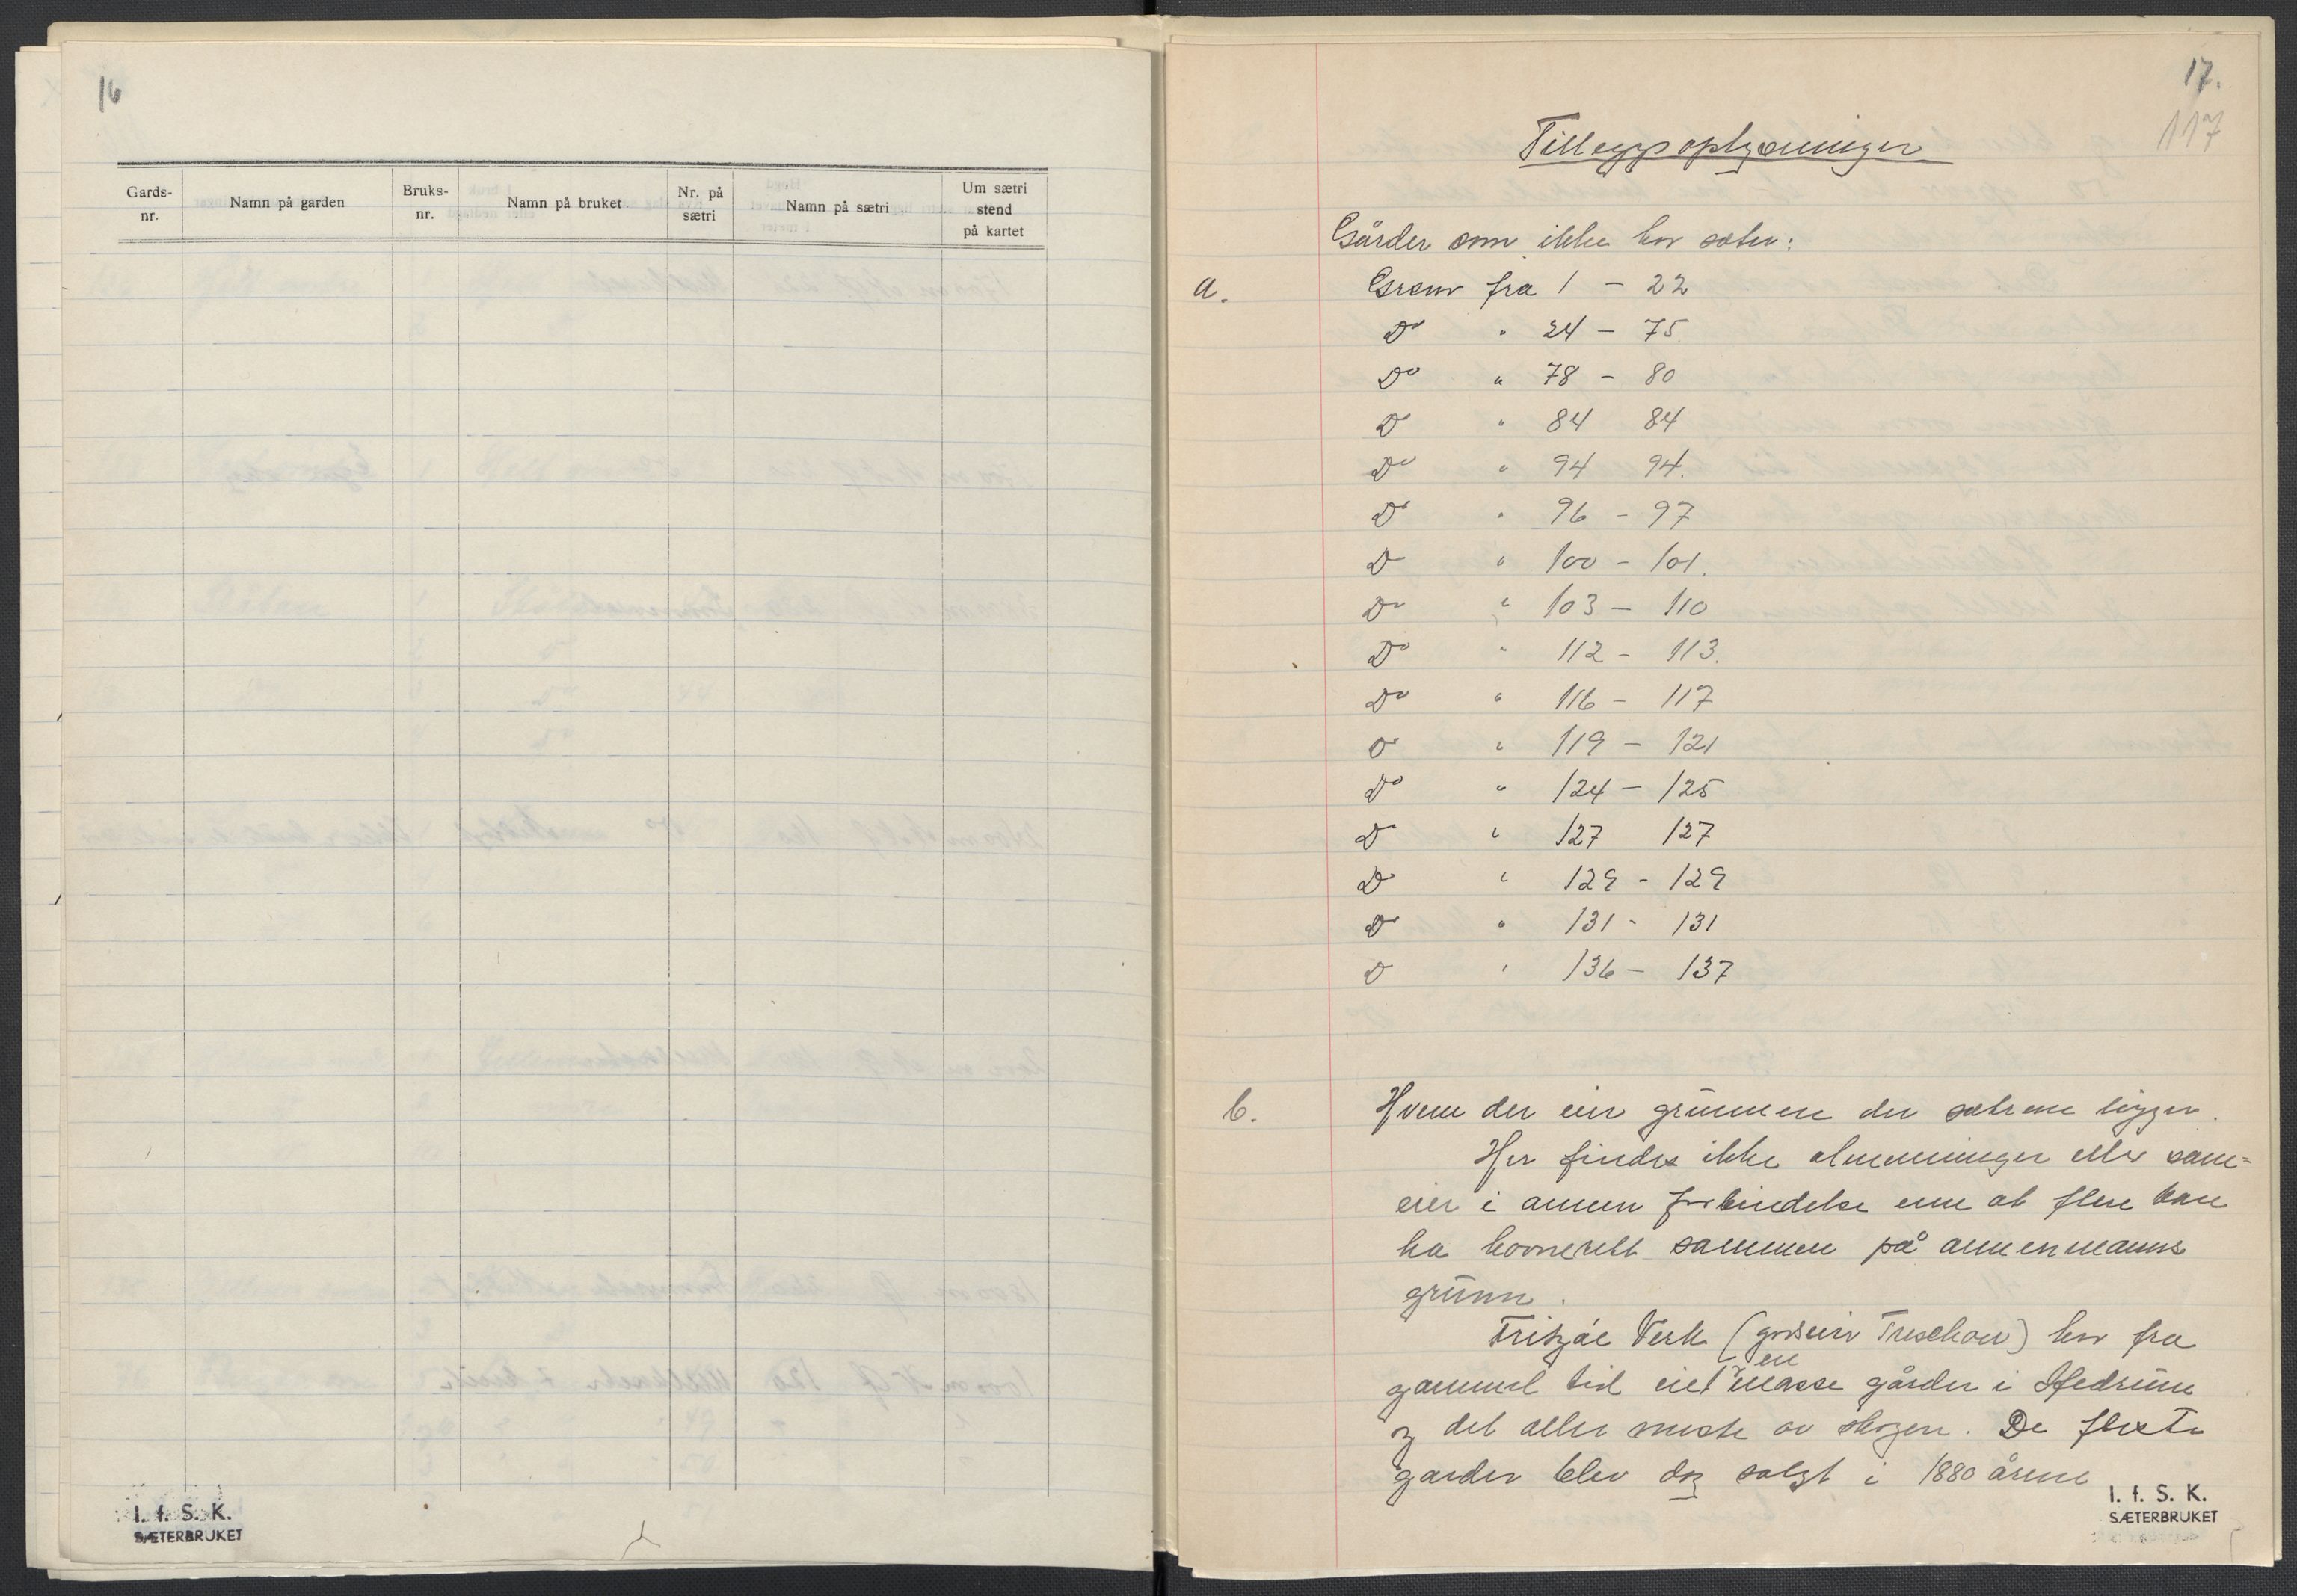 16
Gards-
nr.
Namn på garden
Bruks-
nr.
Namn på bruket
Nr. på
sætri
Namn på sætri
Um sætri
stend
på kartet
I. f. S. K.
SÆTERBRUKET
17.
117
Tilleggsoplysninger
Gårder som ikke har sæter:
a. Grsnr fra 1 - 22
Do " 24 - 75
Do " 78 - 80
Do " 84 84
Do " 94 94.
Do " 96 - 97
Do " 100 - 101.
Do " 103 - 110
Do " 112 - 113.
Do " 116 - 117
Do " 119 - 121
Do " 124 - 125
Do " 127 127
Do " 129 - 129
Do " 131 - 131
Do " 136 - 137
b. Hvem der eier grunnen der sætrene ligger.
Her findes ikke almenninger eller sam=
eier i annen forbindelse enn at flere kan
ha havnerett sammen på annenmanns
grunn.
Fritzøe Verk (godseier Treschow) har fra
gammel tid eiet en masse gårder i Hedrum
og det aller meste av skogen. De fleste
garder blev dog solgt i 1880 årene
I. f. S. K.
SÆTERBRUKET